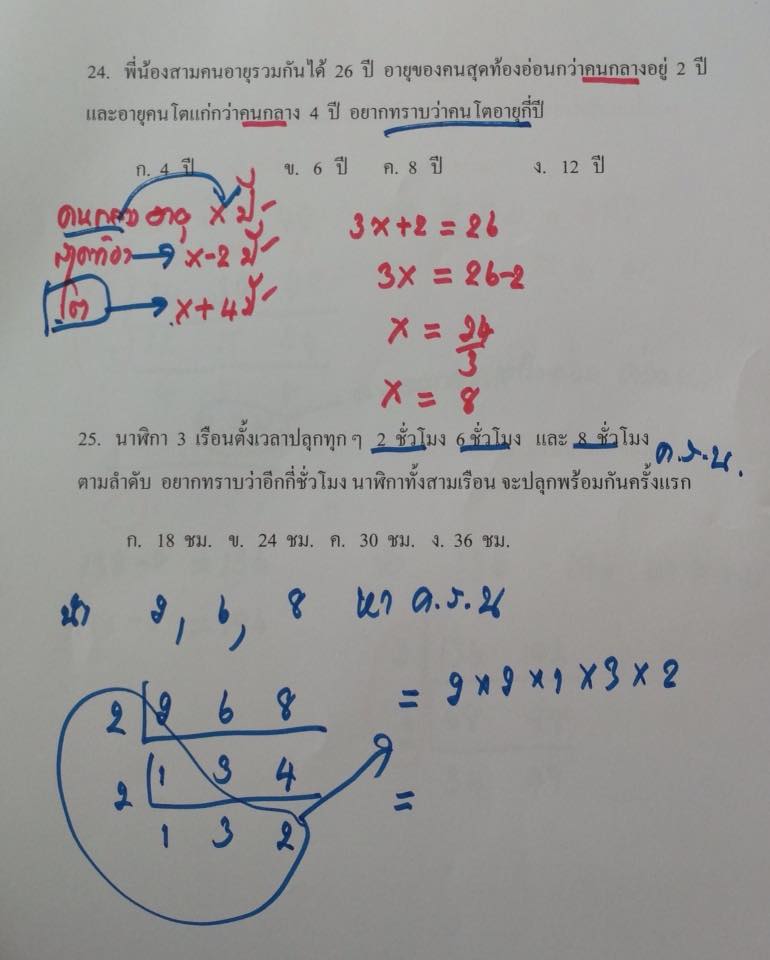 24. พี่น้องสามคนอายุรวมกันได้ 26 ปี อายุของคนสุดท้องอ่อนกว่าคนกลางอยู่ 2 ปี
และอายุคนโตแก่กว่าคนกลาง 4 ปี อยากทราบว่าคนโตอายุกี่ปี
ก. 4 ปี ข. 6 ปี ค. 8 ปี ง. 12 ปี
คนกลาง อายุ x ปี
สุดท้อง → x-2 ปี
โต → x+4 ปี
3x+2 = 26
3x = 26-2
x = 24/3
x = 8
25. นาฬิกา 3 เรือนตั้งเวลาปลุกทุกๆ 2 ชั่วโมง 6 ชั่วโมง และ 8 ชั่วโมง
ค.ร.น.
ตามลำดับ อยากทราบว่าอีกกี่ชั่วโมง นาฬิกาทั้งสามเรือน จะปลุกพร้อมกันครั้งแรก
ก. 18 ชม. ข. 24 ชม. ค. 30 ชม. ง. 36 ชม.
นำ 2, 6, 8 หา ค.ร.น
2 2 6 8
2 1 3 4
1 3 2
= 2 x 2 x 1 x 3 x 2
=